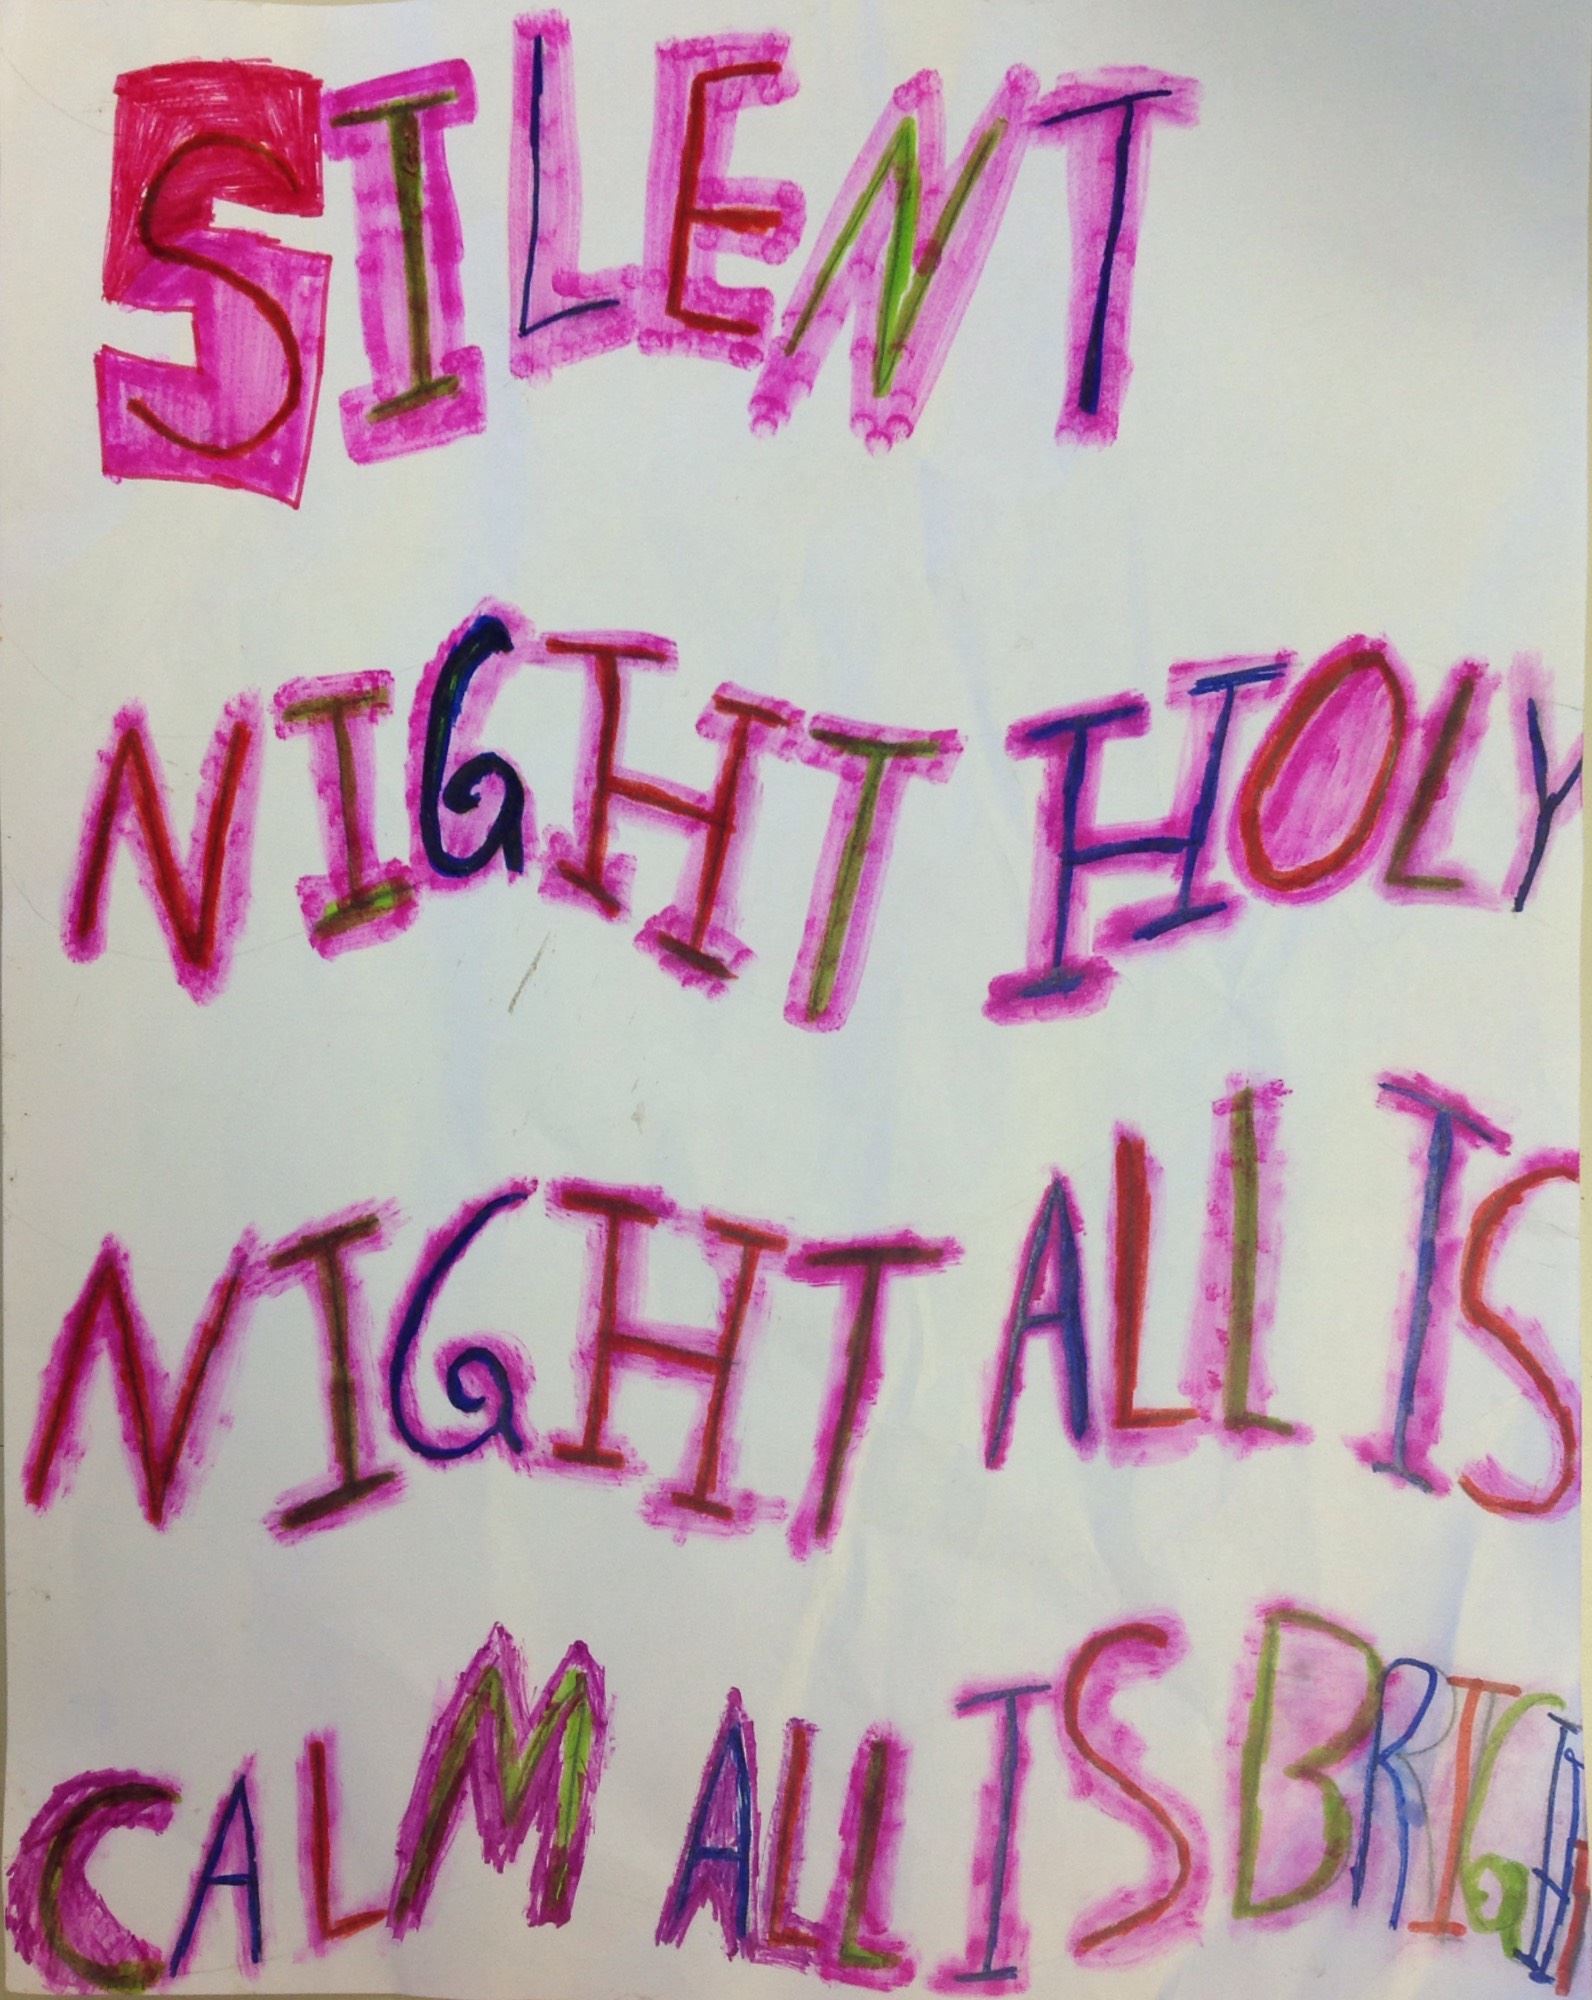 SILENT
NIGHT HOLY
NIGHT ALL IS
CALM ALL IS BRIGHT